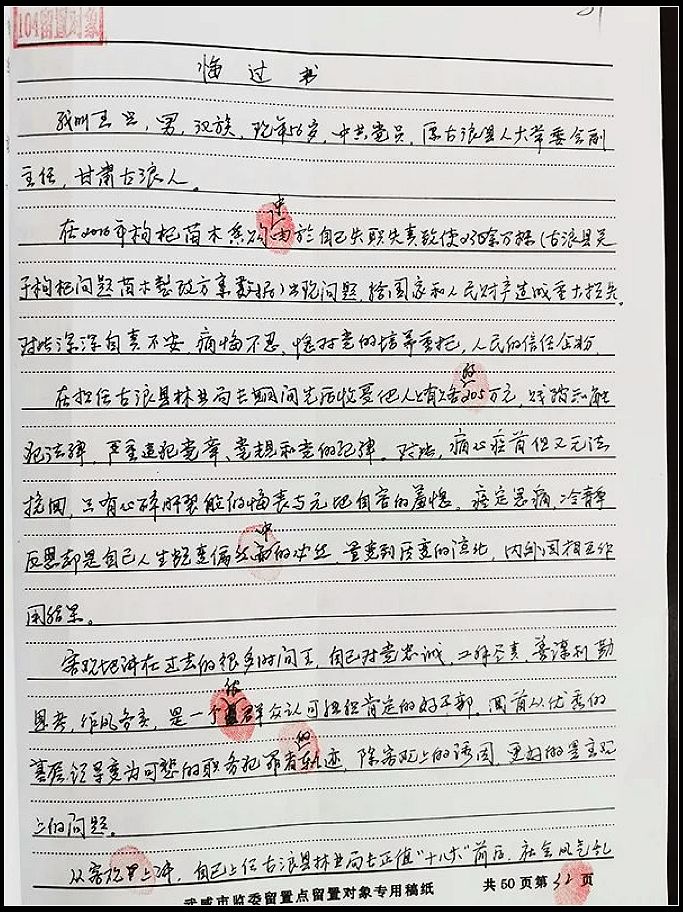 104留置对象
31
悔过书
我叫王兴,男,汉族,现年56岁,中共党员,原古浪县人大常委会副
主任,甘肃古浪人。
在2016年枸杞苗木采购中由于自己失职失责致使2300余万株(古浪县关
于枸杞问题苗木整改方案数据)出现问题,给国家和人民财产造成重大损失。
对此深深自责不安,痛悔不已,愧对党的培养重托,人民的信任企盼。
在担任古浪县林业局长期间先后收受他人贿赂205万元,践踏和触
犯法律,严重违犯党章、党规和党的纪律。对此,痛心疾首但又无法
挽回,只有心碎肝裂般的悔丧与无地自容的羞愧。痛定思痛,冷静
反思却是自己人生蜕变偏中的必然,量变到质变的演化,内外因相互作
用结果。
客观地讲在过去的很多时间里,自己对党忠诚,工作尽责,善谋划勤
思考,作风务实,是一个被群众认可组织肯定的好干部。回首从优秀的
基层领导变为可悲的职务犯罪者的轨迹,除客观上的诱因,更多的是主观
上的问题。
从客观上讲,自己上任古浪县林业局长正值“十八大”前后,社会风气乱
武威市监委留置点留置对象专用稿纸
共50页第31页